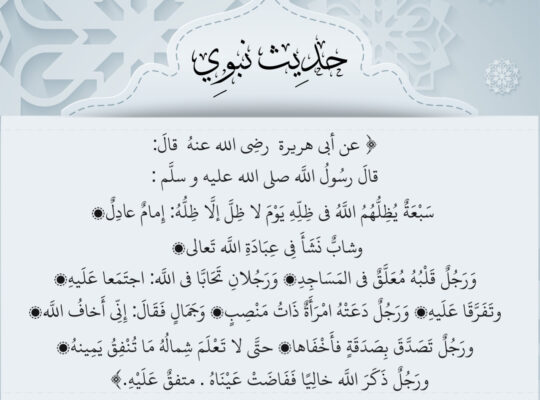 حديث نبوي
﴿ عن أبى هريرة رضِى الله عنهُ قالَ:
قالَ رسُولُ اللَّه صلى الله عليه و سلَّم :
سَبْعَةٌ يُظِلُّهُمُ اللَّهُ فى ظِلِّهِ يَوْمَ لا ظِلَّ إلَّا ظِلُّهُ: إمامٌ عادِلٌ◉
وشابٌّ نَشَأَ فِى عِبَادَةِ اللَّه تَعالى◉
وَرَجُلٌ قَلْبُهُ مُعَلَّقٌ فى المَسَاجِدِ◉ وَرَجُلانِ تَحَابَّا فى اللَّه: اجتمَعا عَلَيهِ
وتَفَرَّقا عَلَيهِ◉ وَرَجُلٌ دَعَتْهُ امْرَأَةٌ ذَاتُ مَنْصِبٍ◉ وَجَمَالٍ فَقَالَ: إنِّى أَخافُ اللَّه◉
ورجُلٌ تَصَدَّقَ بِصَدَقَةٍ فأَخْفَاها◉ حتَّى لا تَعْلَمَ شِمالُهُ مَا تُنْفِقُ يَمِينهُ◉
ورجُلٌ ذكَرَ اللَّه خالِيًا فَفَاضَتْ عَيْنَاهُ . متفقٌ عَلَيْهِ.﴾